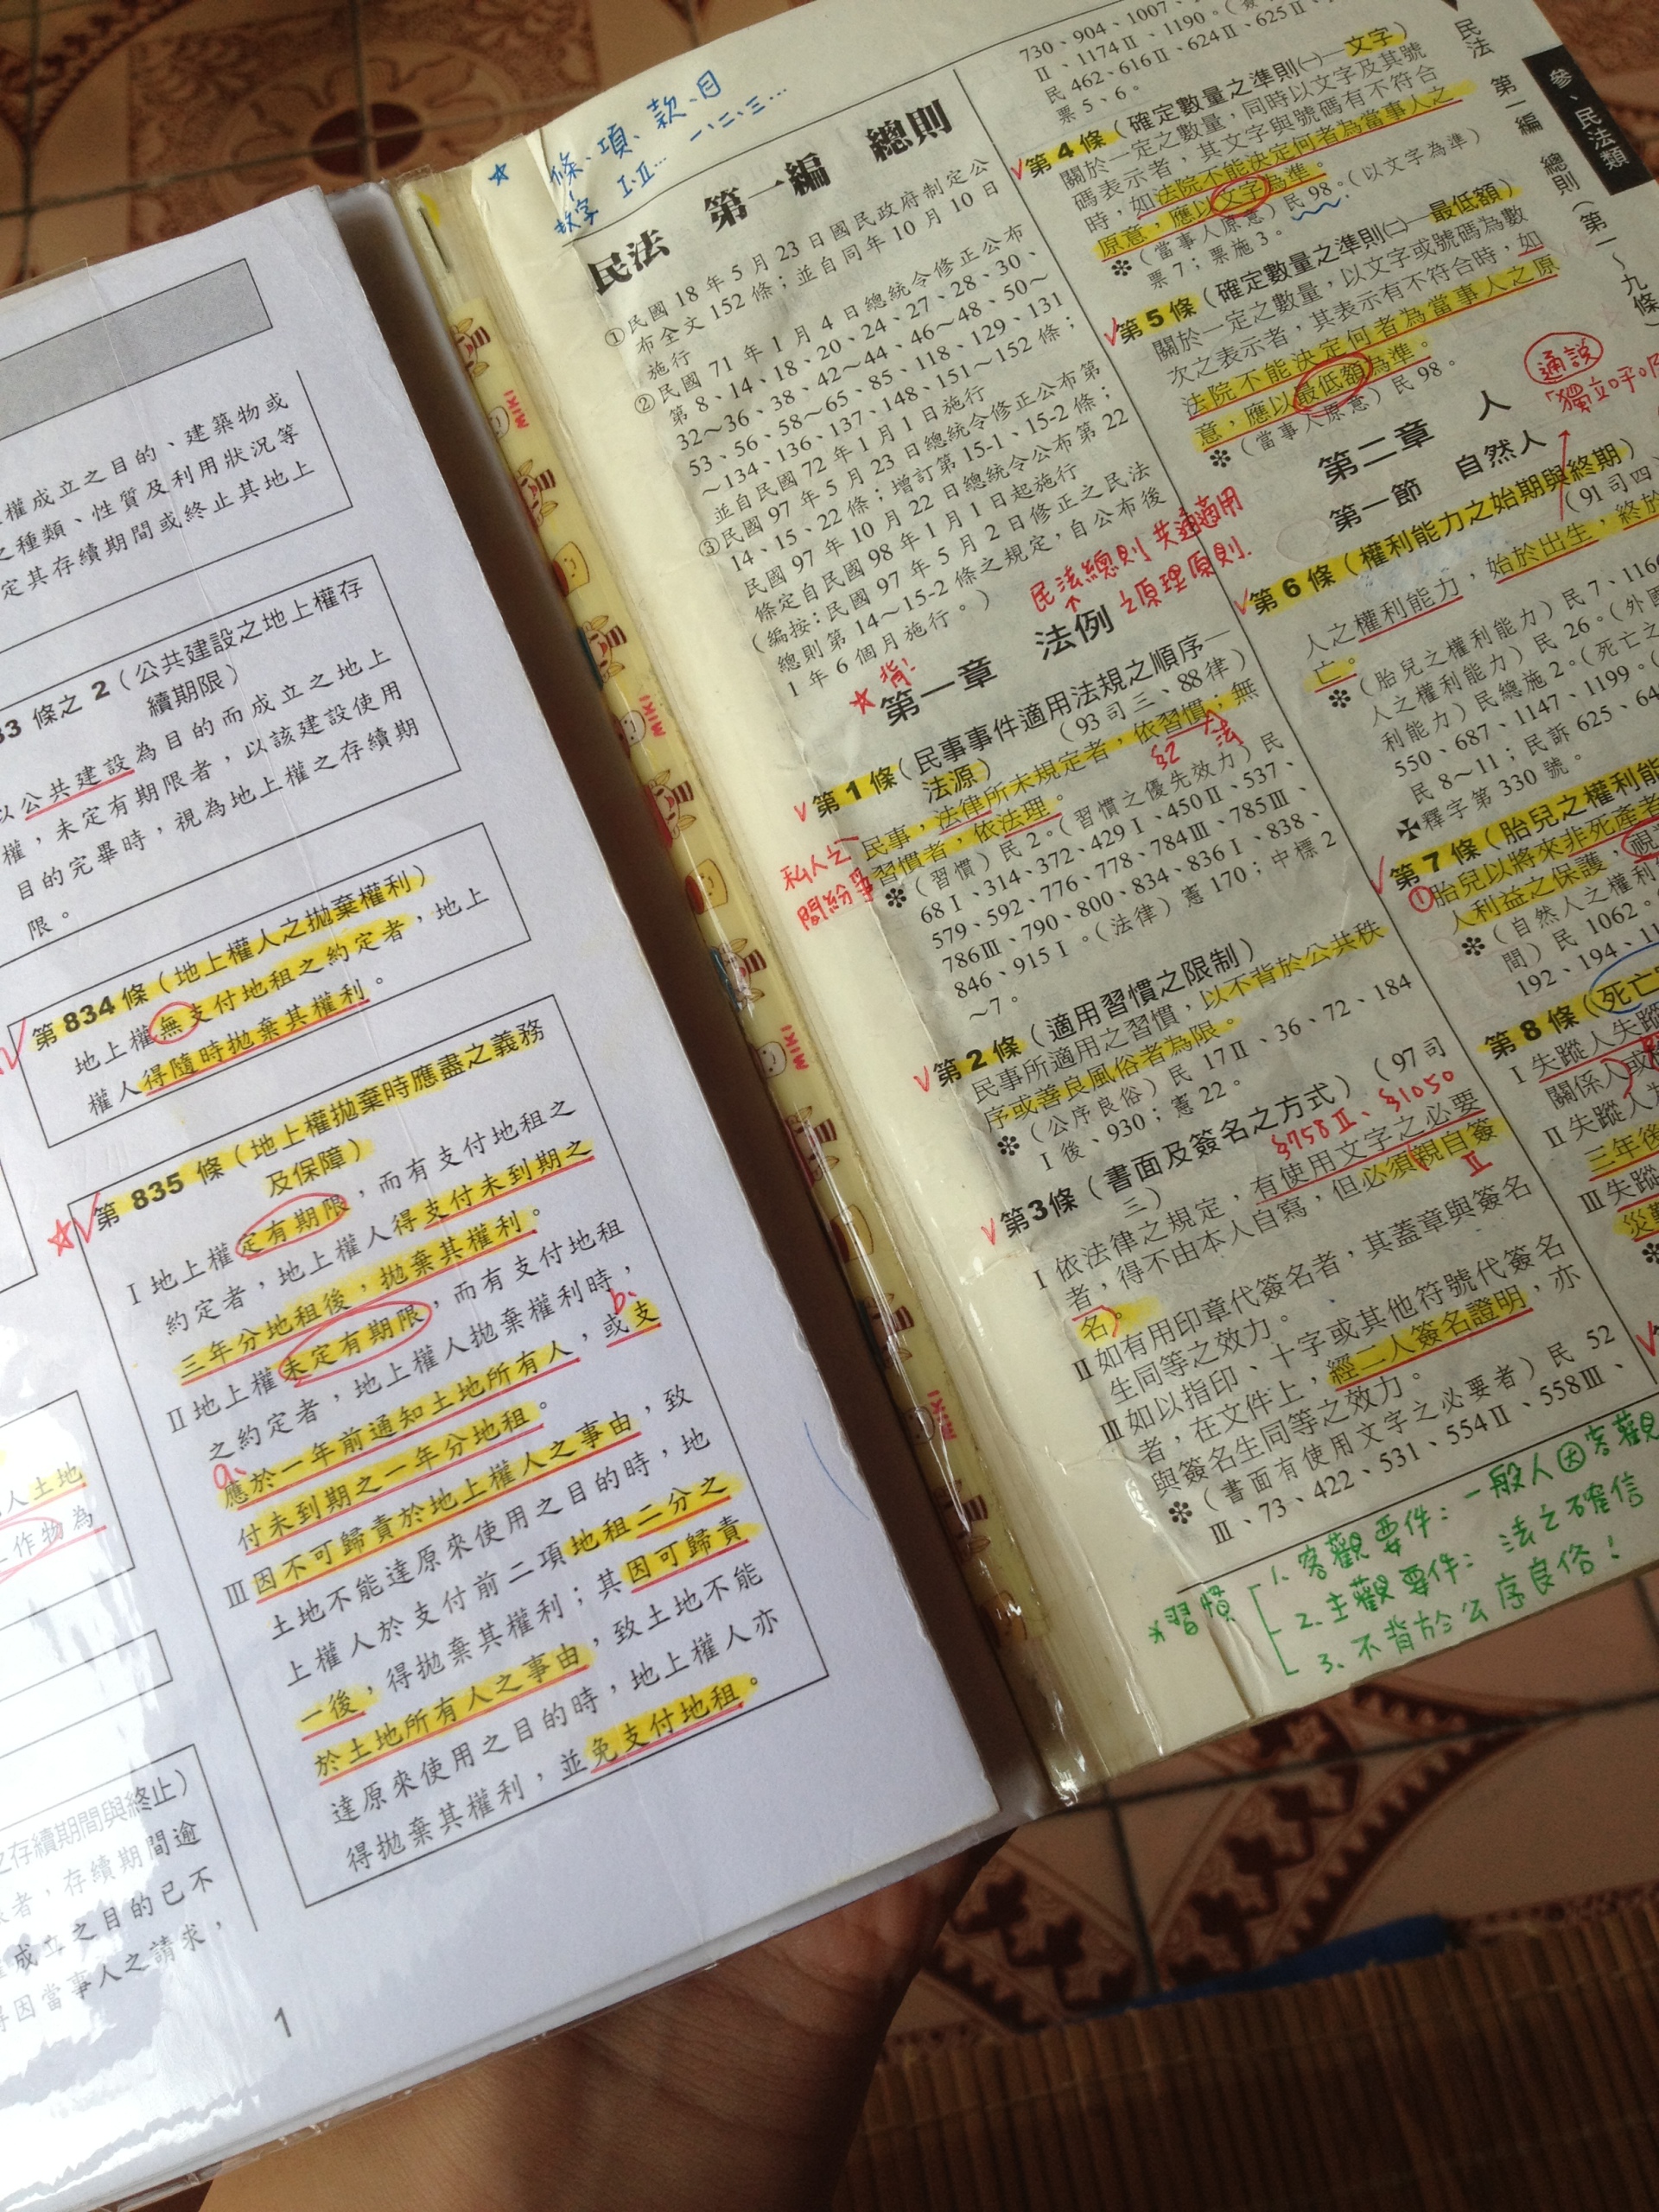 權成立之目的、建築物或
之種類、性質及利用狀況等
定其存續期間或終止其地上
33 條之 2（公共建設之地上權存
續期限）
以公共建設為目的而成立之地上
權，未定有期限者，以該建設使用
目的完畢時，視為地上權之存續期
限。
第 834 條（地上權人之拋棄權利）
地上權無支付地租之約定者，地上
權人得隨時拋棄其權利。
第 835 條（地上權拋棄時應盡之義務
及保障）
I 地上權定有期限，而有支付地租之
約定者，地上權人得支付未到期之
三年分地租後，拋棄其權利。
II 地上權未定有期限，而有支付地租
之約定者，地上權人拋棄權利時，
b.
a.
應於一年前通知土地所有人，或支
付未到期之一年分地租。
III 因不可歸責於地上權人之事由，致
土地不能達原來使用之目的時，地
上權人於支付前二項地租二分之
一後，得拋棄其權利；其因可歸責
於土地所有人之事由，致土地不能
達原來使用之目的時，地上權人亦
得拋棄其權利，並免支付地租。
人土地
作物為
之存續期間與終止）
者，存續期間逾
成立之目的已不
得因當事人之請求，
1
條、項、款、目
數字 I.II... 一、二、三...
民法 第一編 總則
①民國 18 年 5 月 23 日國民政府制定公
布全文 152 條；並自同年 10 月 10 日
施行
②民國 71 年 1 月 4 日總統令修正公布
第 8、14、18、20、24、27、28、30、
32～36、38、42～44、46～48、50～
53、56、58～65、85、118、129、131
～134、136、137、148、151～152 條；
並自民國 72 年 1 月 1 日施行
③民國 97 年 5 月 23 日總統令修正公布第
14、15、22 條；增訂第 15-1、15-2 條；
民國 97 年 10 月 22 日總統令公布第 22
條定自民國 98 年 1 月 1 日起施行
（編按：民國 97 年 5 月 2 日修正之民法
總則第 14～15-2 條之規定，自公布後
1 年 6 個月施行。）
民法總則共通適用
之原理原則.
背!
第一章 法例
第 1 條（民事事件適用法規之順序—
法源）（93 司三、88 律）
民事，法律所未規定者，依習慣；無
習慣者，依法理。
§2 法
私人之
間紛爭
（習慣）民 2。（習慣之優先效力）民
68 I、314、372、429 I、450 II、537、
579、592、776、778、784III、785III、
786III、790、800、834、836 I、838、
846、915 I。（法律）憲 170；中標 2
～7。
第 2 條（適用習慣之限制）
民事所適用之習慣，以不背於公共秩
序或善良風俗者為限。
（公序良俗）民 17 II、36、72、184
I 後、930；憲 22。
第3條（書面及簽名之方式）（97 司
三）
§758 II、§1050
I 依法律之規定，有使用文字之必要
者，得不由本人自寫，但必須親自簽
名。
II
II 如有用印章代簽名者，其蓋章與簽名
生同等之效力。
III 如以指印、十字或其他符號代簽名
者，在文件上，經二人簽名證明，亦
與簽名生同等之效力。
（書面有使用文字之必要者）民 52
III、73、422、531、554 II、558III、
習慣
1. 客觀要件：一般人因客觀
2. 主觀要件：法之確信
3. 不背於公序良俗！
730、904、1007、
II、1174 II、1190。
民 462、616 II、624 II、625 II、
票 5、6。
第 4 條（確定數量之準則㈠—文字）
關於一定之數量，同時以文字及其號
碼表示者，其文字與號碼有不符合
時，如法院不能決定何者為當事人之
原意，應以文字為準。
（當事人原意）民 98。（以文字為準）
票 7；票施 3。
第 5 條（確定數量之準則㈡—最低額）
關於一定之數量，以文字或號碼為數
次之表示者，其表示有不符合時，如
法院不能決定何者為當事人之原
意，應以最低額為準。
（當事人原意）民 98。
第二章 人
第一節 自然人
通說
「獨立呼
第 6 條（權利能力之始期與終期）
（91 司四、
人之權利能力，始於出生，終於
亡。
（胎兒之權利能力）民 7、116
人之權利能力）民 26。（外國
利能力）民總施 2。（死亡之
550、687、1147、1199。（
民 8～11；民訴 625、64
釋字第 330 號。
第 7 條（胎兒之權利能
①胎兒以將來非死產者
人利益之保護，視
（自然人之權利
間）民 1062。
192、194、11
第 8 條（死亡
I 失蹤人失蹤
關係人或
II 失蹤人為
三年後
III 失蹤
災難
民法 第一編 總則（第一～九條）
參、民法類
MIKI
MIKI
MIKI
MIKI
MIKI